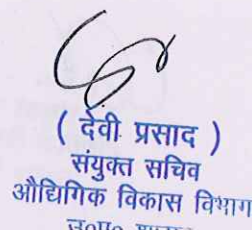 ( देवी प्रसाद )
संयुक्त सचिव
औद्यिगिक विकास विभाग
उ०प्र०